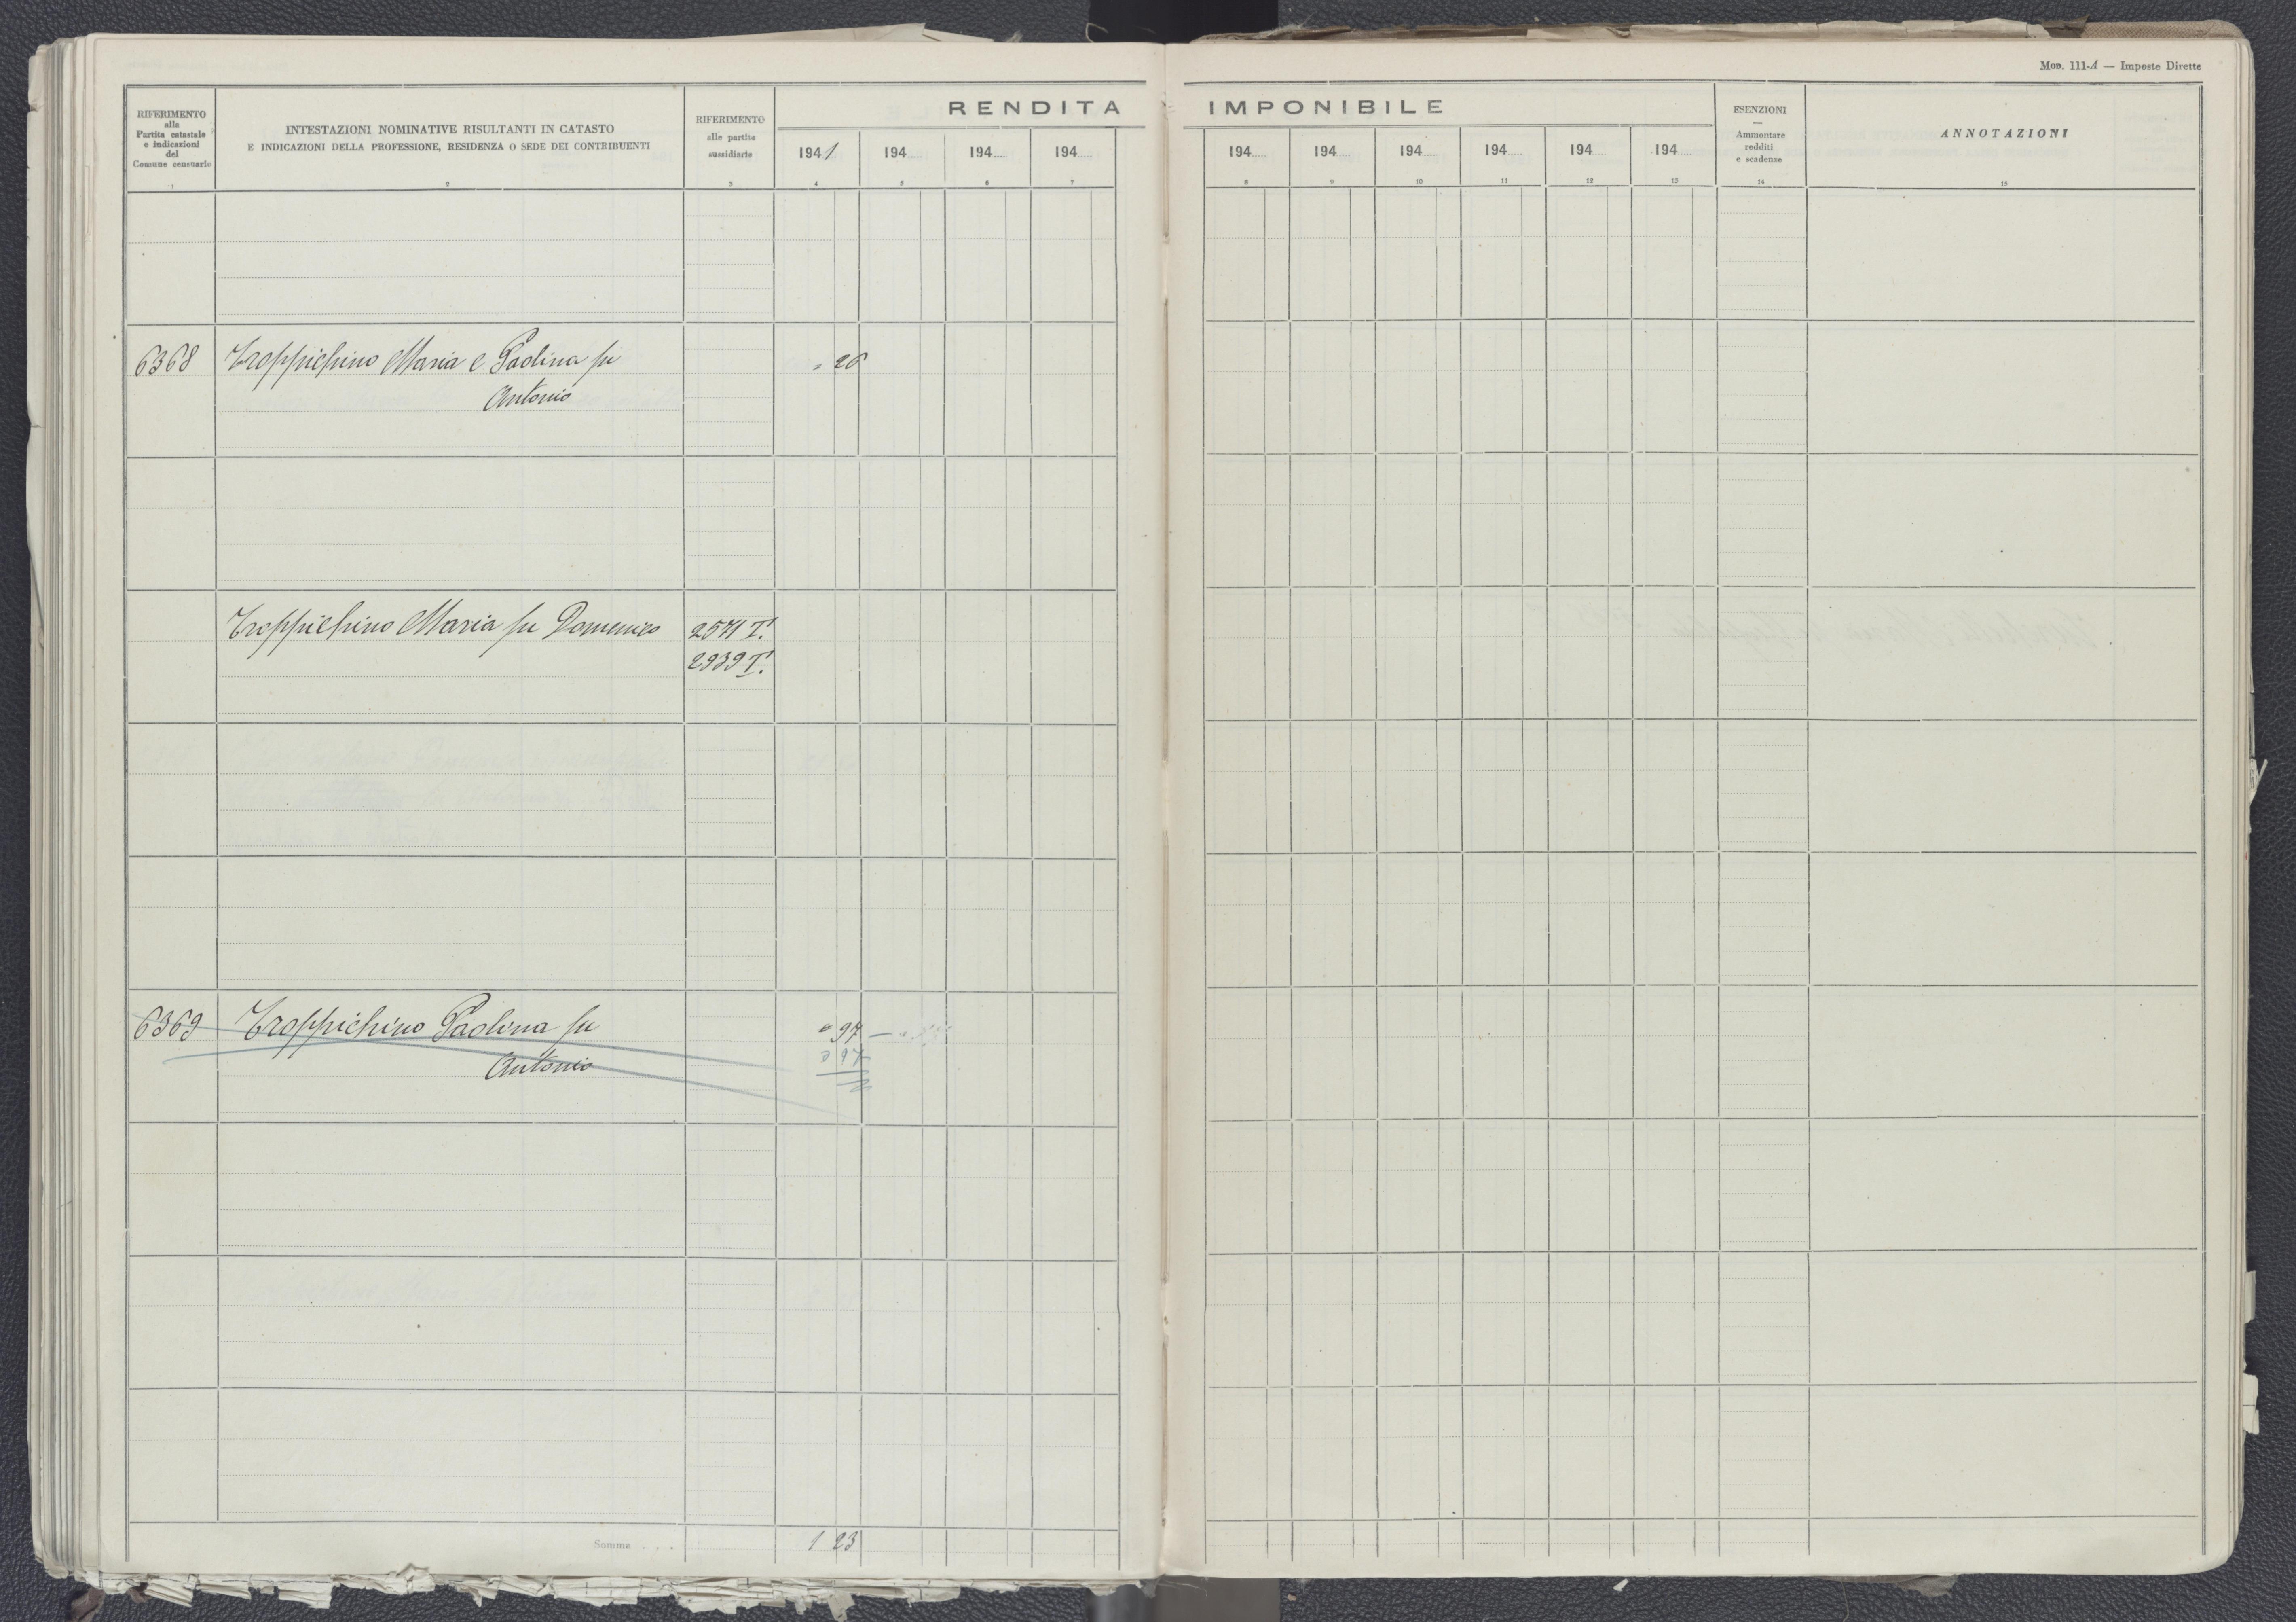 Mod. 111-A — Imposte Dirette
RENDITA IMPONIBILE
RIFERIMENTO
alla
Partita catastale
e indicazioni
del
Comune censuario
1
INTESTAZIONI NOMINATIVE RISULTANTI IN CATASTO
E INDICAZIONI DELLA PROFESSIONE, RESIDENZA O SEDE DEI CONTRIBUENTI
2
RIFERIMENTO
alle partite
sussidiarie
3
1941
4
194
5
194
6
194
7
194
8
194
9
194
10
194
11
194
12
194
13
ESENZIONI
—
Ammontare
redditi
e scadenze
14
ANNOTAZIONI
15
6368 Troppichino Maria e Paolina fu „ 26
Antonio
Troppichino Maria fu Domenico 2571 T.
2939 T.
6369 Troppichino Paolina fu „ 97 —
Antonio 0 97
Somma . . . 1 23